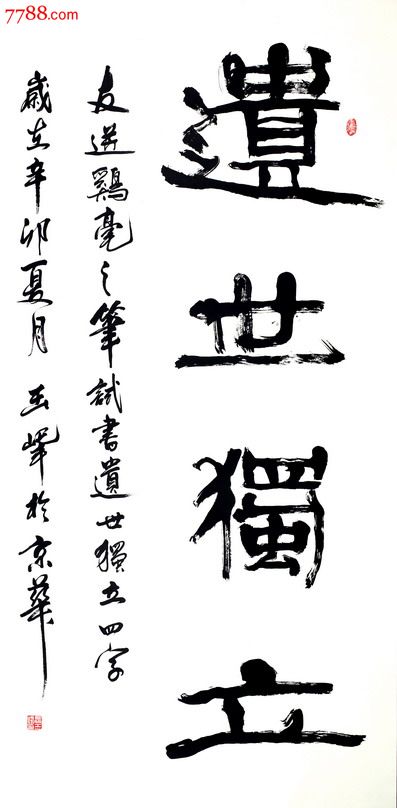 7788.com
遺世獨立
友送鷄毫之筆試書遺世獨立四字
歲在辛卯夏月 玉峰於京華